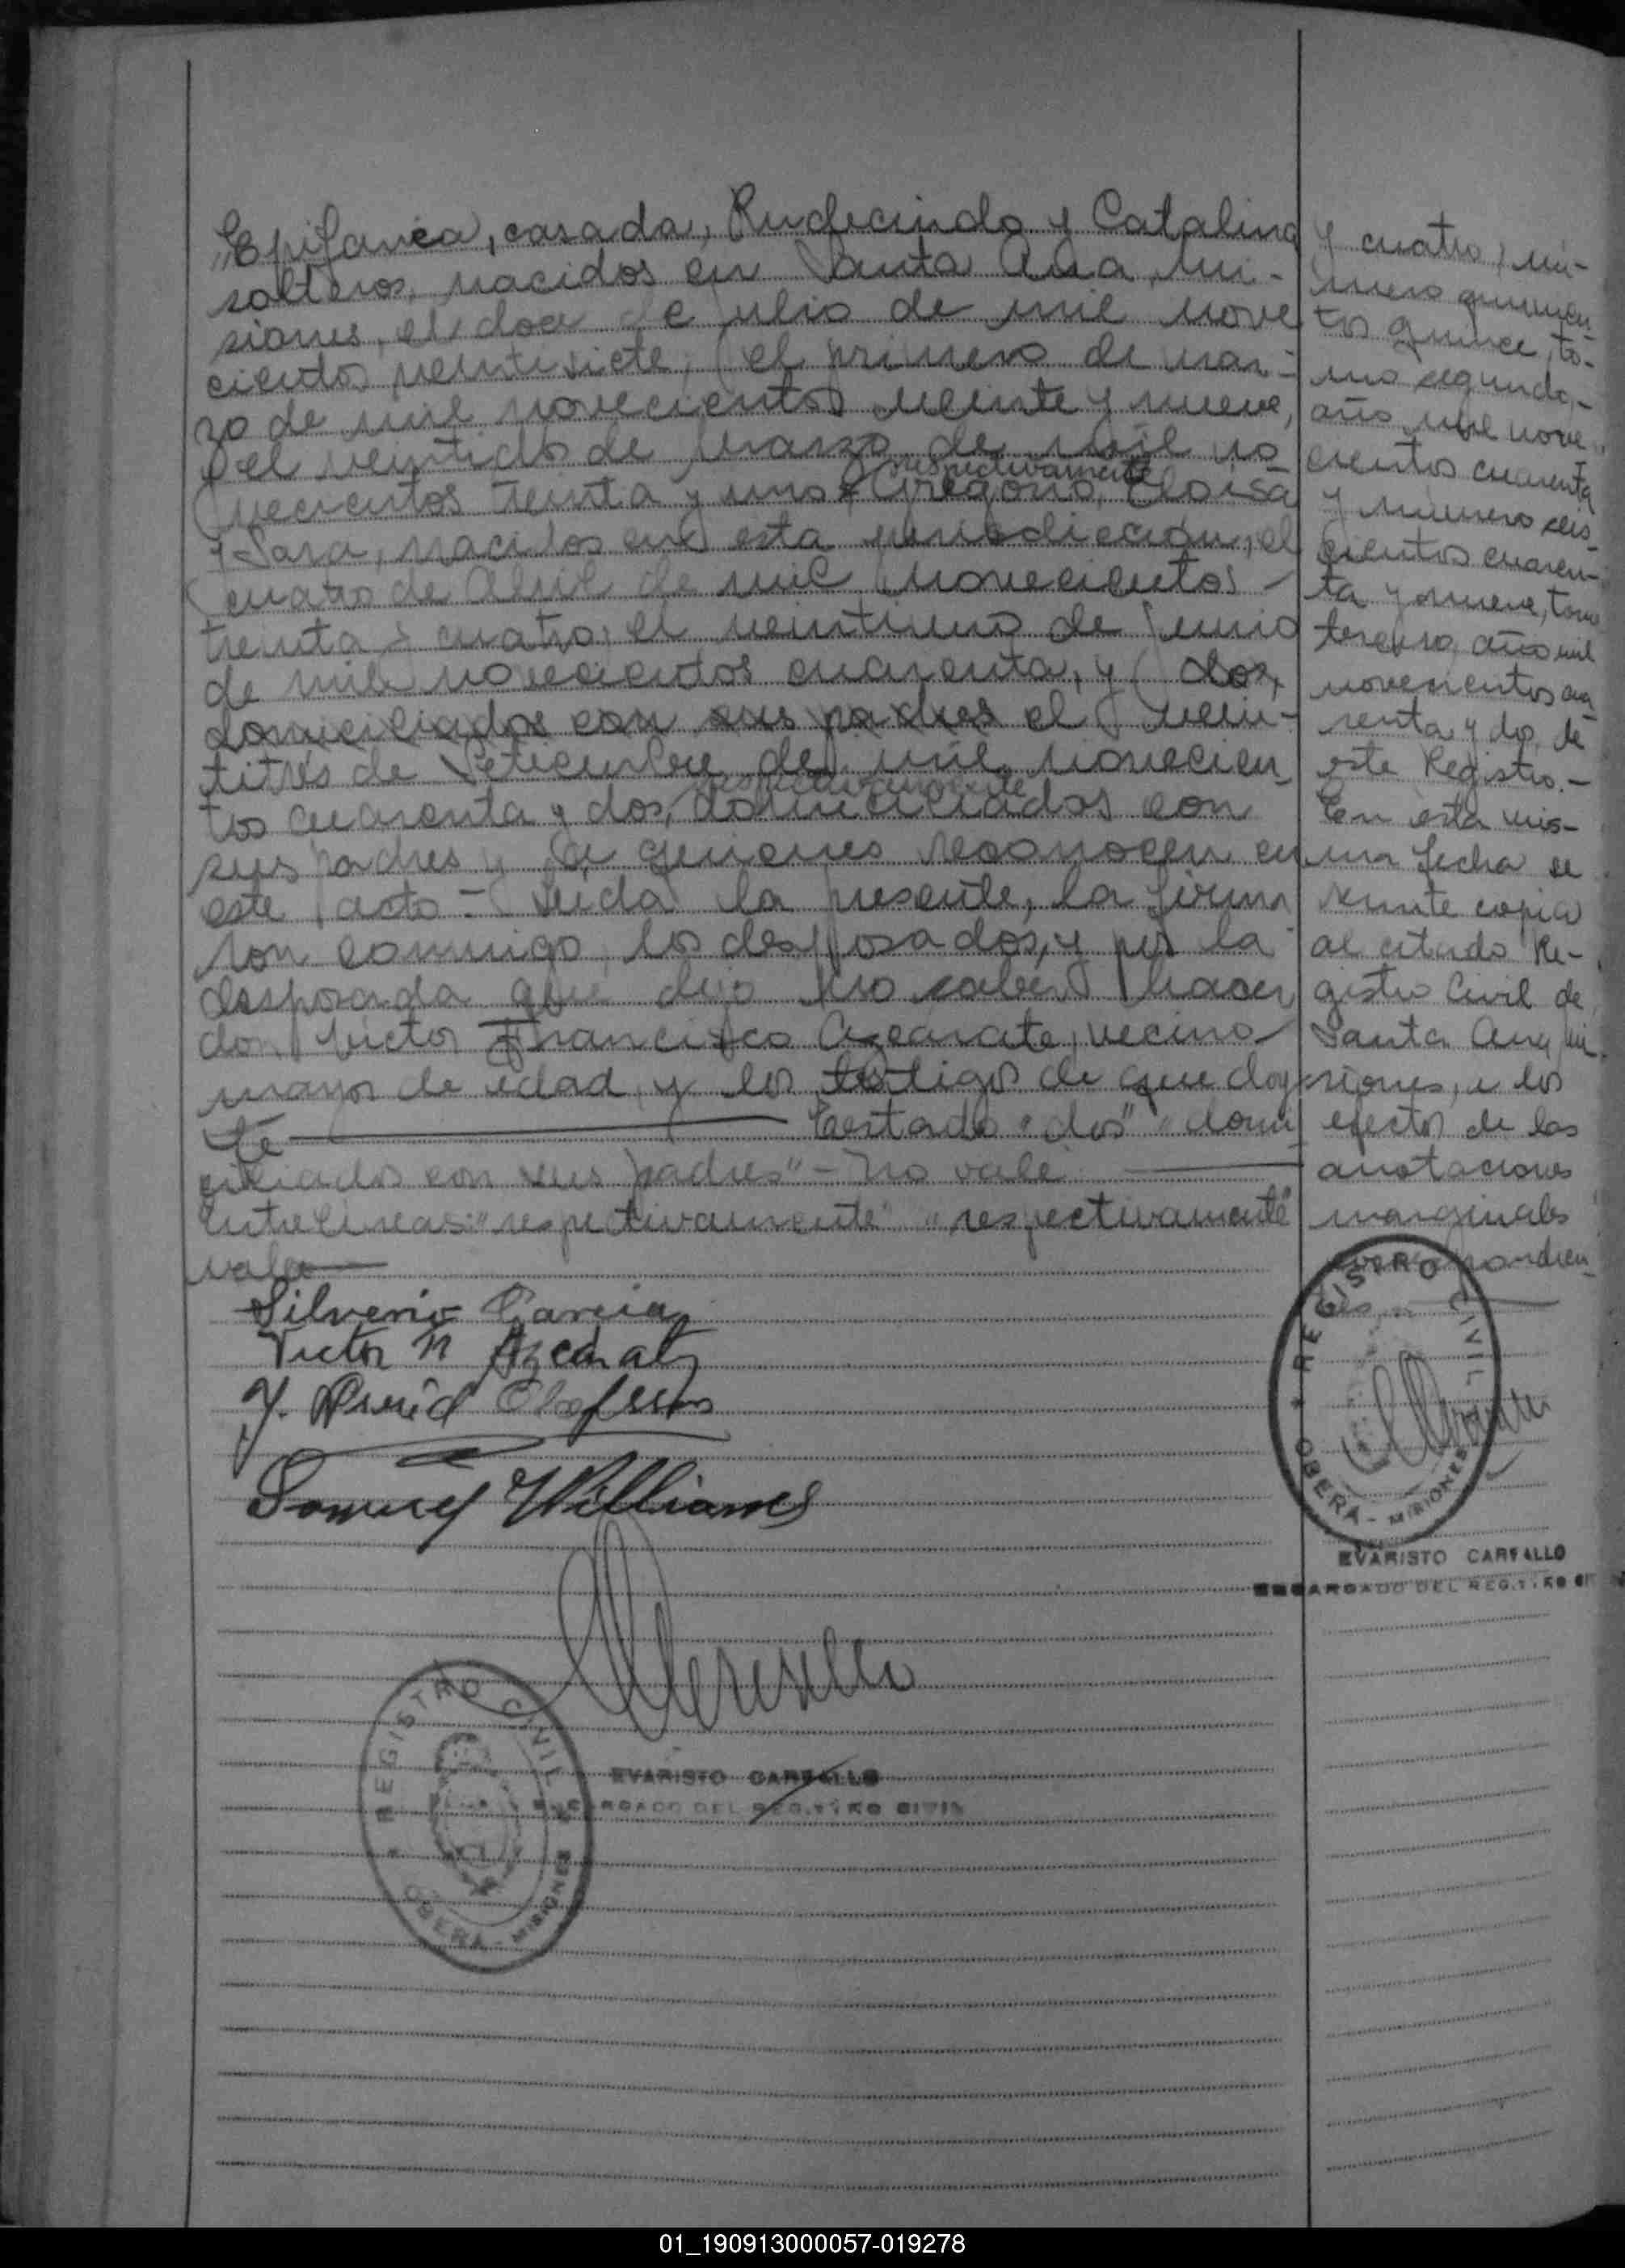 "Epifania, casada, Rudecindo y Catalina
solteros, nacidos en Santa Ana, Mi-
siones, el doce de julio de mil nove
cientos veintisiete, el primero de mar-
zo de mil novecientos veinte y nueve,
y el veintidos de marzo de mil no-
respectivamente
vecientos treinta y uno y Gregorio, Eloisa
y Sara, nacidos en esta jurisdiccion, el
cuatro de Abril de mil novecientos
treinta y cuatro, el veintiuno de Junio
de mil novecientos cuarenta, y dos,
domiciliados con sus padres el vein-
titrés de Setiembre de mil novecien
respectivamente
tos cuarenta y dos, domiciliados con
sus padres y a quienes reconocen en
este acto.- Leida la presente, la firma
ron conmigo, los desposados, y por la
desposada que dijo no saber hacer
don Victor Francisco Azcárate, vecino
mayor de edad, y los testigos de que doy
fé Testado "dos" "domi
ciliados con sus padres" - No vale
Entre lineas: "respectivamente" "respectivamente"
vale
Silverio Garcia
Victor Azcarate
Samuel Williams
EVARISTO CARFALLO
ENCARGADO DEL REGISTRO CIVIL
REGISTRO CIVIL
OBERA - MISIONES
y cuatro, nú-
mero quinien-
tos quince, to-
mo segundo,-
año mil nove-
cientos cuarenta
y número seis-
cientos cuaren-
ta y nueve, tomo
tercero, año mil
novecientos cua
renta y dos de
este Registro.-
En esta mis-
ma fecha se
remite copia
al citado Re-
gistro Civil de
Santa Ana, Mi-
siones, a los
efectos de las
anotaciones
marginales
correspondien
tes.
REGISTRO CIVIL
OBERA - MISIONES
EVARISTO CARFALLO
ENCARGADO DEL REGISTRO CIVIL
01_190913000057-019278